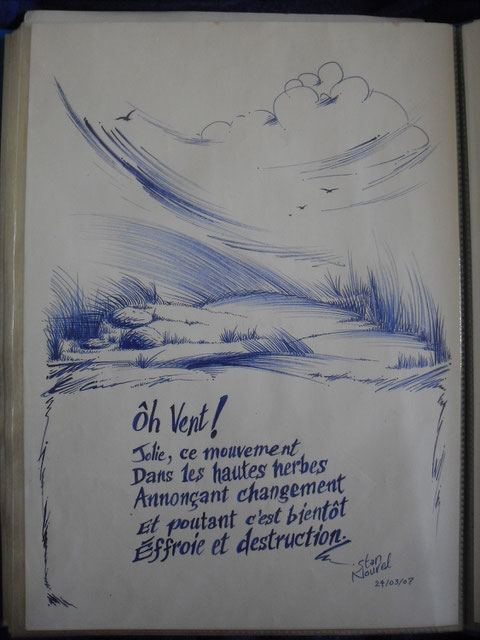 Ôh Vent!
Jolie, ce mouvement
Dans les hautes herbes
Annonçant changement
Et poutant c'est bientôt
Éffroie et destruction.
Stan
24/03/07